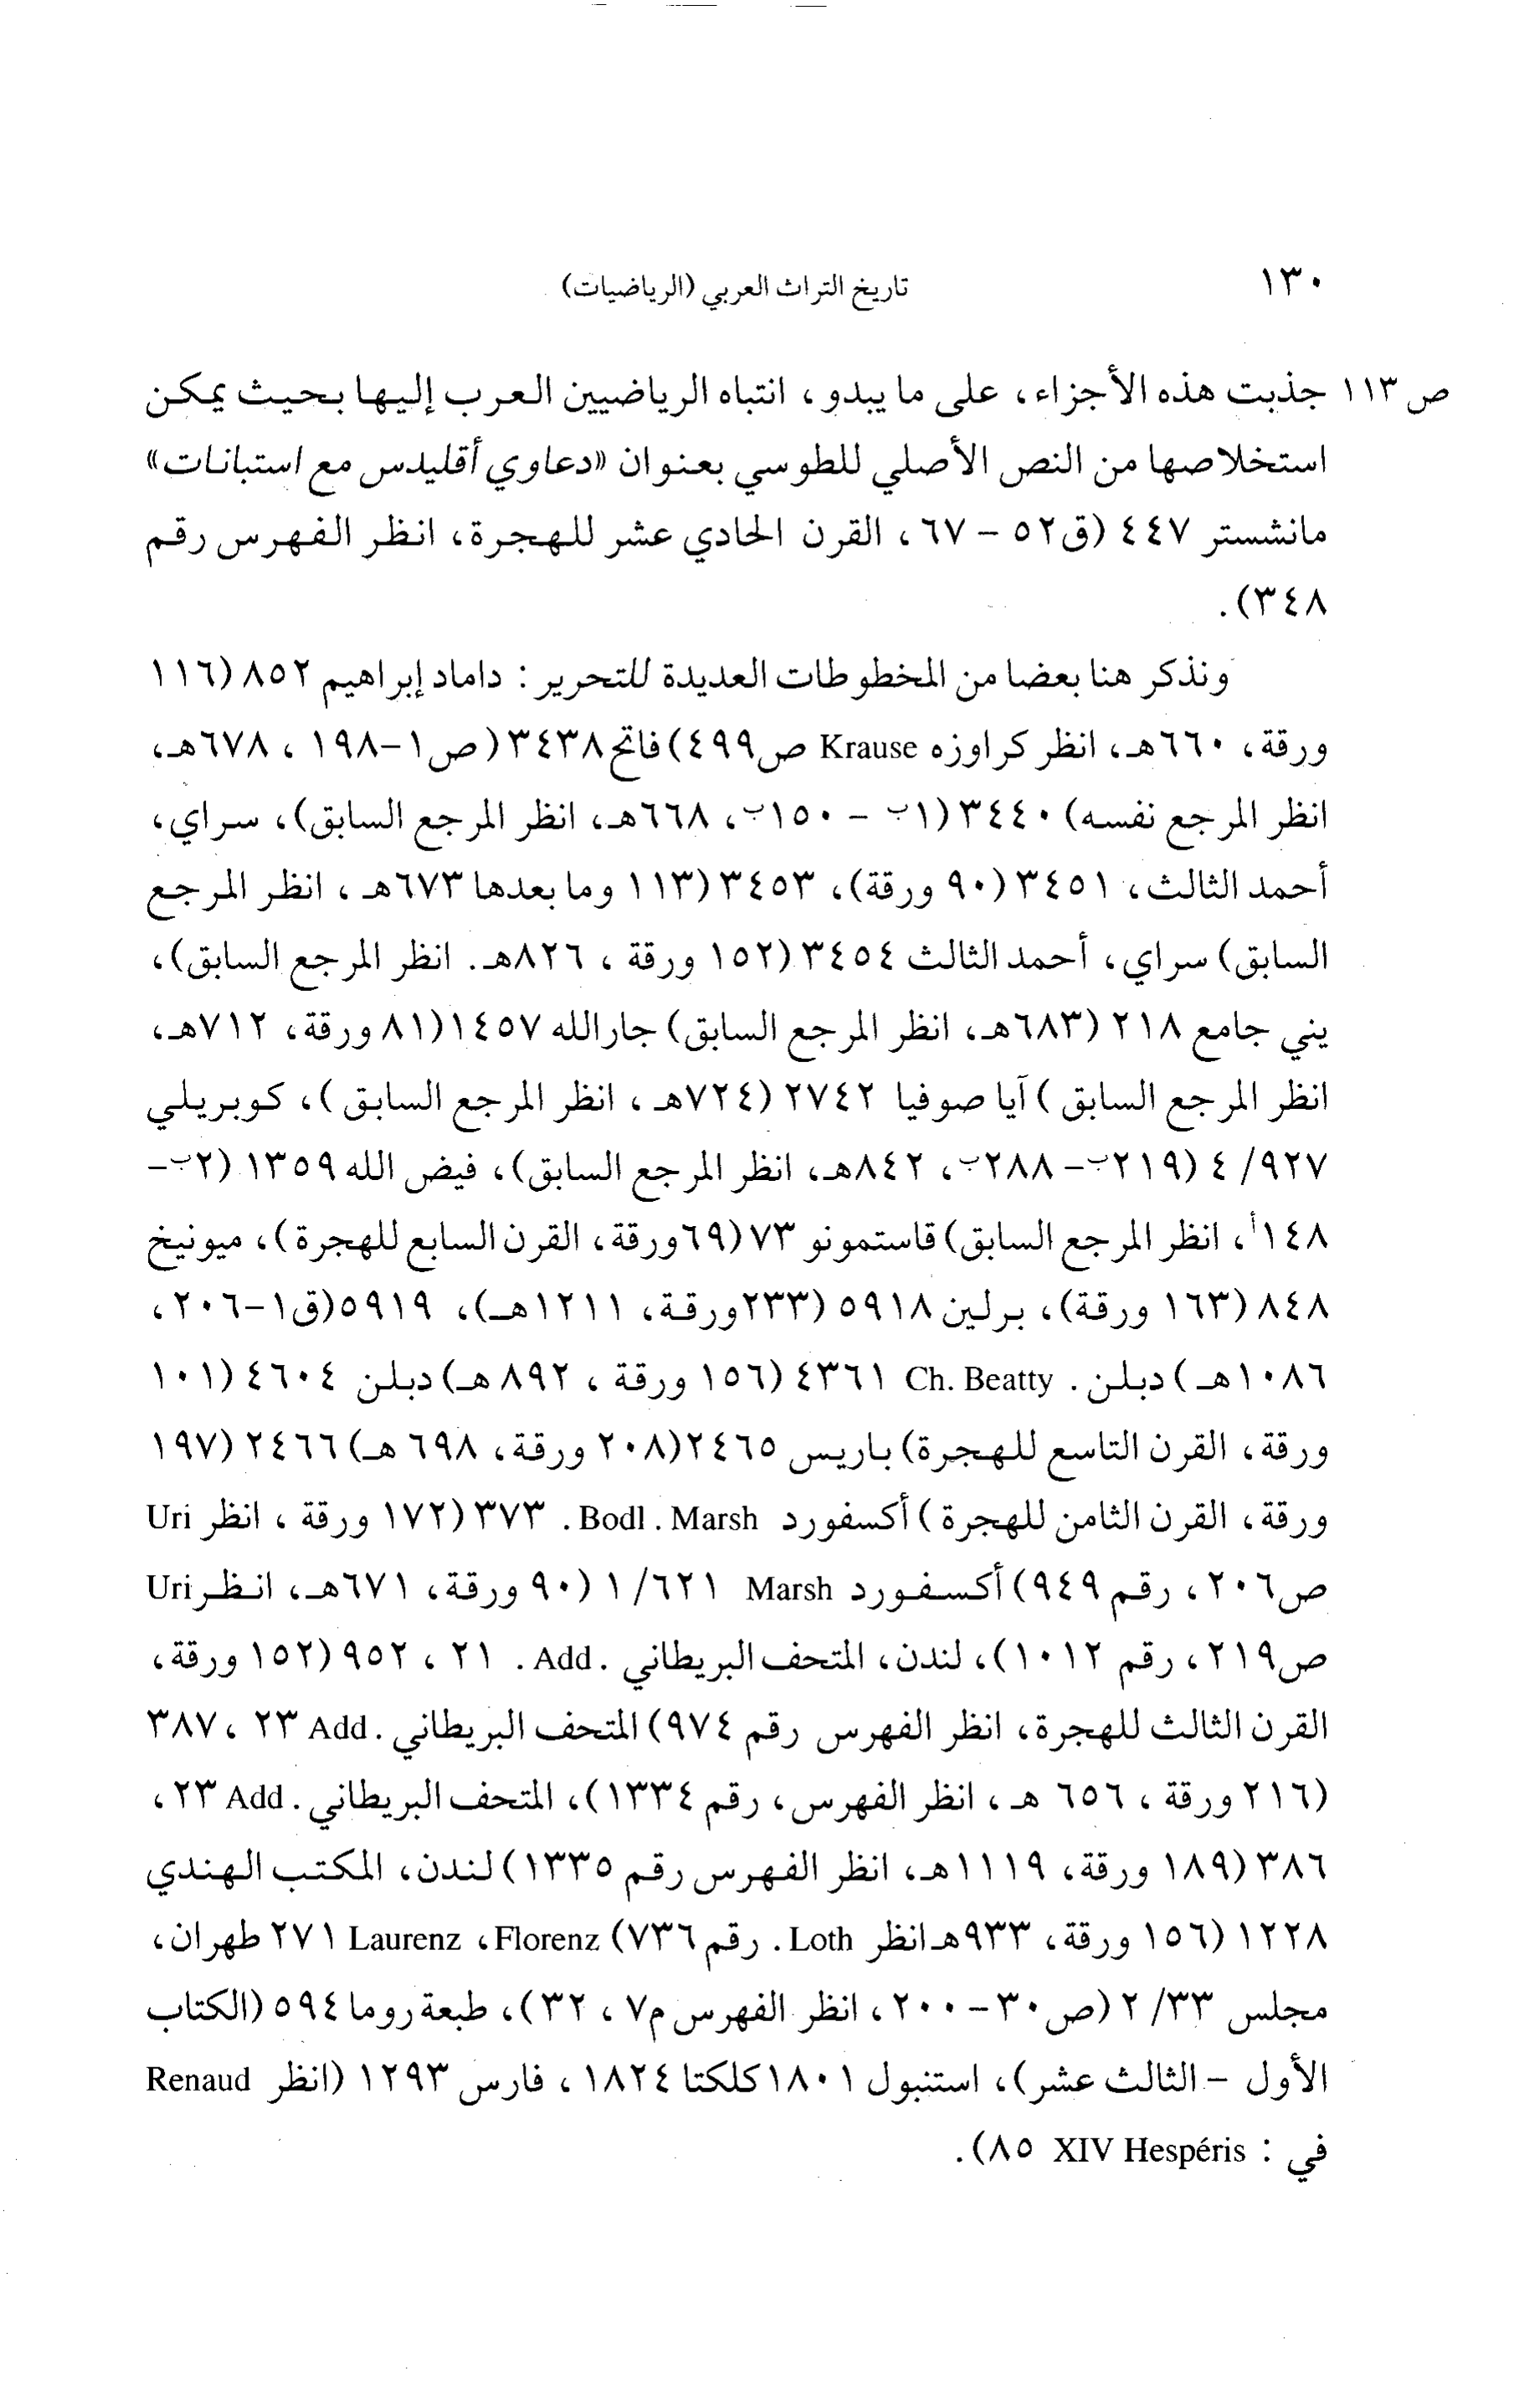 ١٣٠ تاريخ التراث العربي (الرياضيات)
ص١١٣ جذبت هذه الأجزاء، على ما يبدو، انتباه الرياضيين العرب إليها بحيث يمكن
استخلاصها من النص الأصلي للطوسي بعنوان «دعاوي أقليدس مع استبانات»
مانشستر ٤٤٧ (ق٥٢ - ٦٧، القرن الحادي عشر للهجرة، انظر الفهرس رقم
٣٤٨).
ونذكر هنا بعضا من المخطوطات العديدة للتحرير: داماد إبراهيم ٨٥٢ (١١٦
ورقة، ٦٦٠هـ، انظر كراوزه Krause ص٤٩٩) فاتح ٣٤٣٨ (ص١-١٩٨، ٦٧٨هـ،
انظر المرجع نفسه) ٣٤٤٠ (١ب - ١٥٠ب، ٦٦٨هـ، انظر المرجع السابق)، سراي،
أحمد الثالث، ٣٤٥١ (٩٠ ورقة)، ٣٤٥٣ (١١٣ وما بعدها ٦٧٣هـ، انظر المرجع
السابق) سراي، أحمد الثالث ٣٤٥٤ (١٥٢ ورقة، ٨٢٦هـ. انظر المرجع السابق)،
يني جامع ٢١٨ (٦٨٣هـ، انظر المرجع السابق) جارالله ١٤٥٧ (٨١ ورقة، ٧١٢هـ،
انظر المرجع السابق) آيا صوفيا ٢٧٤٢ (٧٢٤هـ، انظر المرجع السابق)، كوبريلي
٩٢٧/ ٤ (٢١٩ب-٢٨٨ب، ٨٤٢هـ، انظر المرجع السابق)، فيض الله ١٣٥٩ (٢ب-
١٤٨أ، انظر المرجع السابق) قاستمونو ٧٣ (٦٩ورقة، القرن السابع للهجرة)، ميونيخ
٨٤٨ (١٦٣ ورقة)، برلين ٥٩١٨ (٢٣٣ورقة، ١٢١١هـ)، ٥٩١٩ (ق١-٢٠٦،
١٠٨٦هـ) دبلن. Ch. Beatty ٤٣٦١ (١٥٦ ورقة، ٨٩٢هـ) دبلن ٤٦٠٤ (١٠١
ورقة، القرن التاسع للهجرة) باريس ٢٤٦٥ (٢٠٨ ورقة، ٦٩٨ هـ) ٢٤٦٦ (١٩٧
ورقة، القرن الثامن للهجرة) أكسفورد Bodl. Marsh. ٣٧٣ (١٧٢ ورقة، انظر Uri
ص٢٠٦، رقم ٩٤٩) أكسفورد Marsh ٦٢١/ ١ (٩٠ ورقة، ٦٧١هـ، انظر Uri
ص٢١٩، رقم ١٠١٢)، لندن، المتحف البريطاني .Add. ٢١، ٩٥٢ (١٥٢ ورقة،
القرن الثالث للهجرة، انظر الفهرس رقم ٩٧٤) المتحف البريطاني .Add ٢٣، ٣٨٧
(٢١٦ ورقة، ٦٥٦ هـ، انظر الفهرس، رقم ١٣٣٤)، المتحف البريطاني .Add ٢٣،
٣٨٦ (١٨٩ ورقة، ١١١٩هـ، انظر الفهرس رقم ١٣٣٥) لندن، المكتب الهندي
١٢٢٨ (١٥٦ ورقة، ٩٣٣هـ انظر Loth. رقم ٧٣٦) Florenz، Laurenz ٢٧١ طهران،
مجلس ٣٣/ ٢ (ص٣٠-٢٠٠، انظر الفهرس م٧، ٣٢)، طبعة روما ٥٩٤ (الكتاب
الأول - الثالث عشر)، استنبول ١٨٠١ كلكتا ١٨٢٤، فارس ١٢٩٣ (انظر Renaud
في: XIV Hespéris ٨٥).